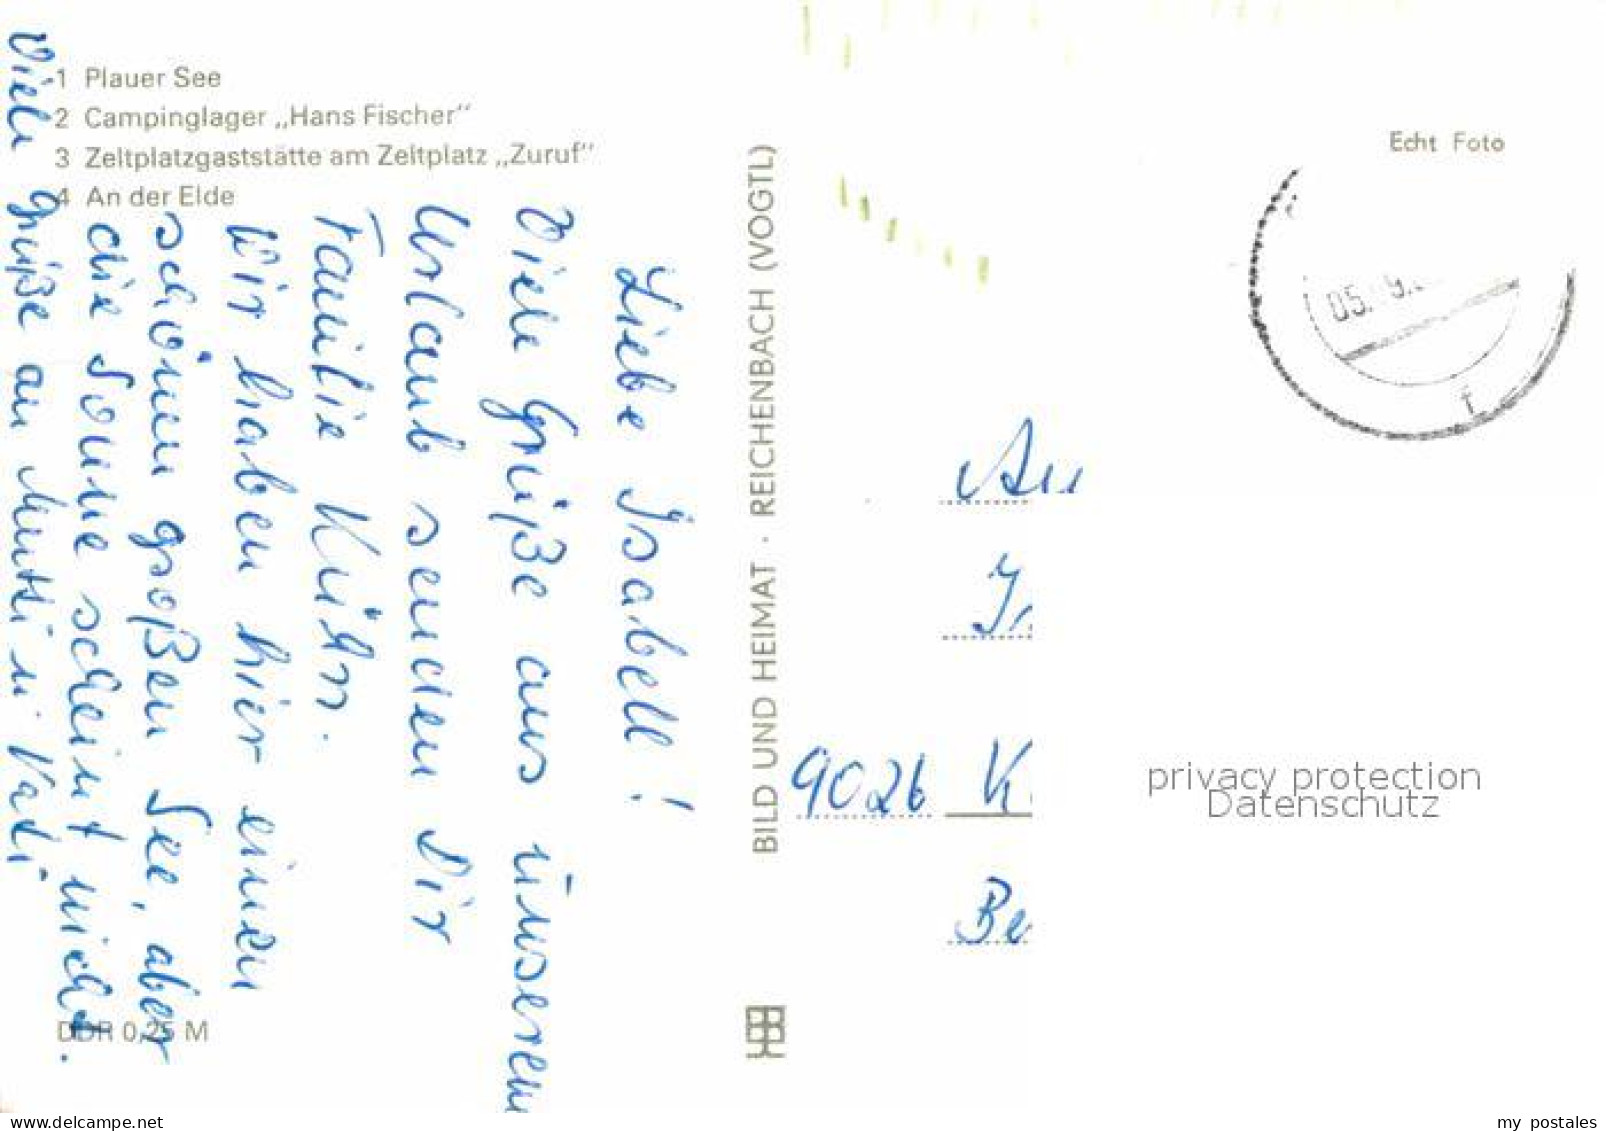 1 Plauer See
2 Campinglager „Hans Fischer“
3 Zeltplatzgaststätte am Zeltplatz „Zuruf“
4 An der Elde
Liebe Isabell!
Viele Grüße aus unserem
Urlaub senden Dir
Familie Kühn.
Wir haben hier einen
schönen großen See, aber
die Sonne scheint nicht.
Viele Grüße an Mutti u. Vati
DDR 0,25 M
BILD UND HEIMAT · REICHENBACH (VOGTL)
Echt Foto
05.
An
9026 K
Be
privacy protection
Datenschutz
delcampe.net
my_postales